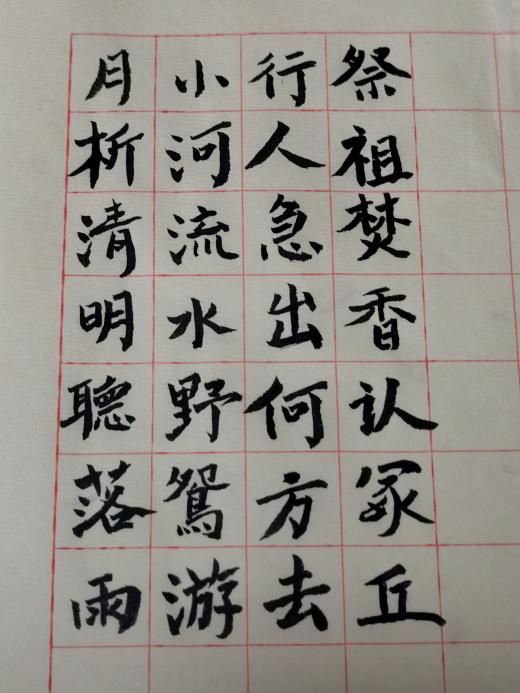 月析清明聽落雨
小河流水野鴛游
行人急出何方去
祭祖焚香认冢丘